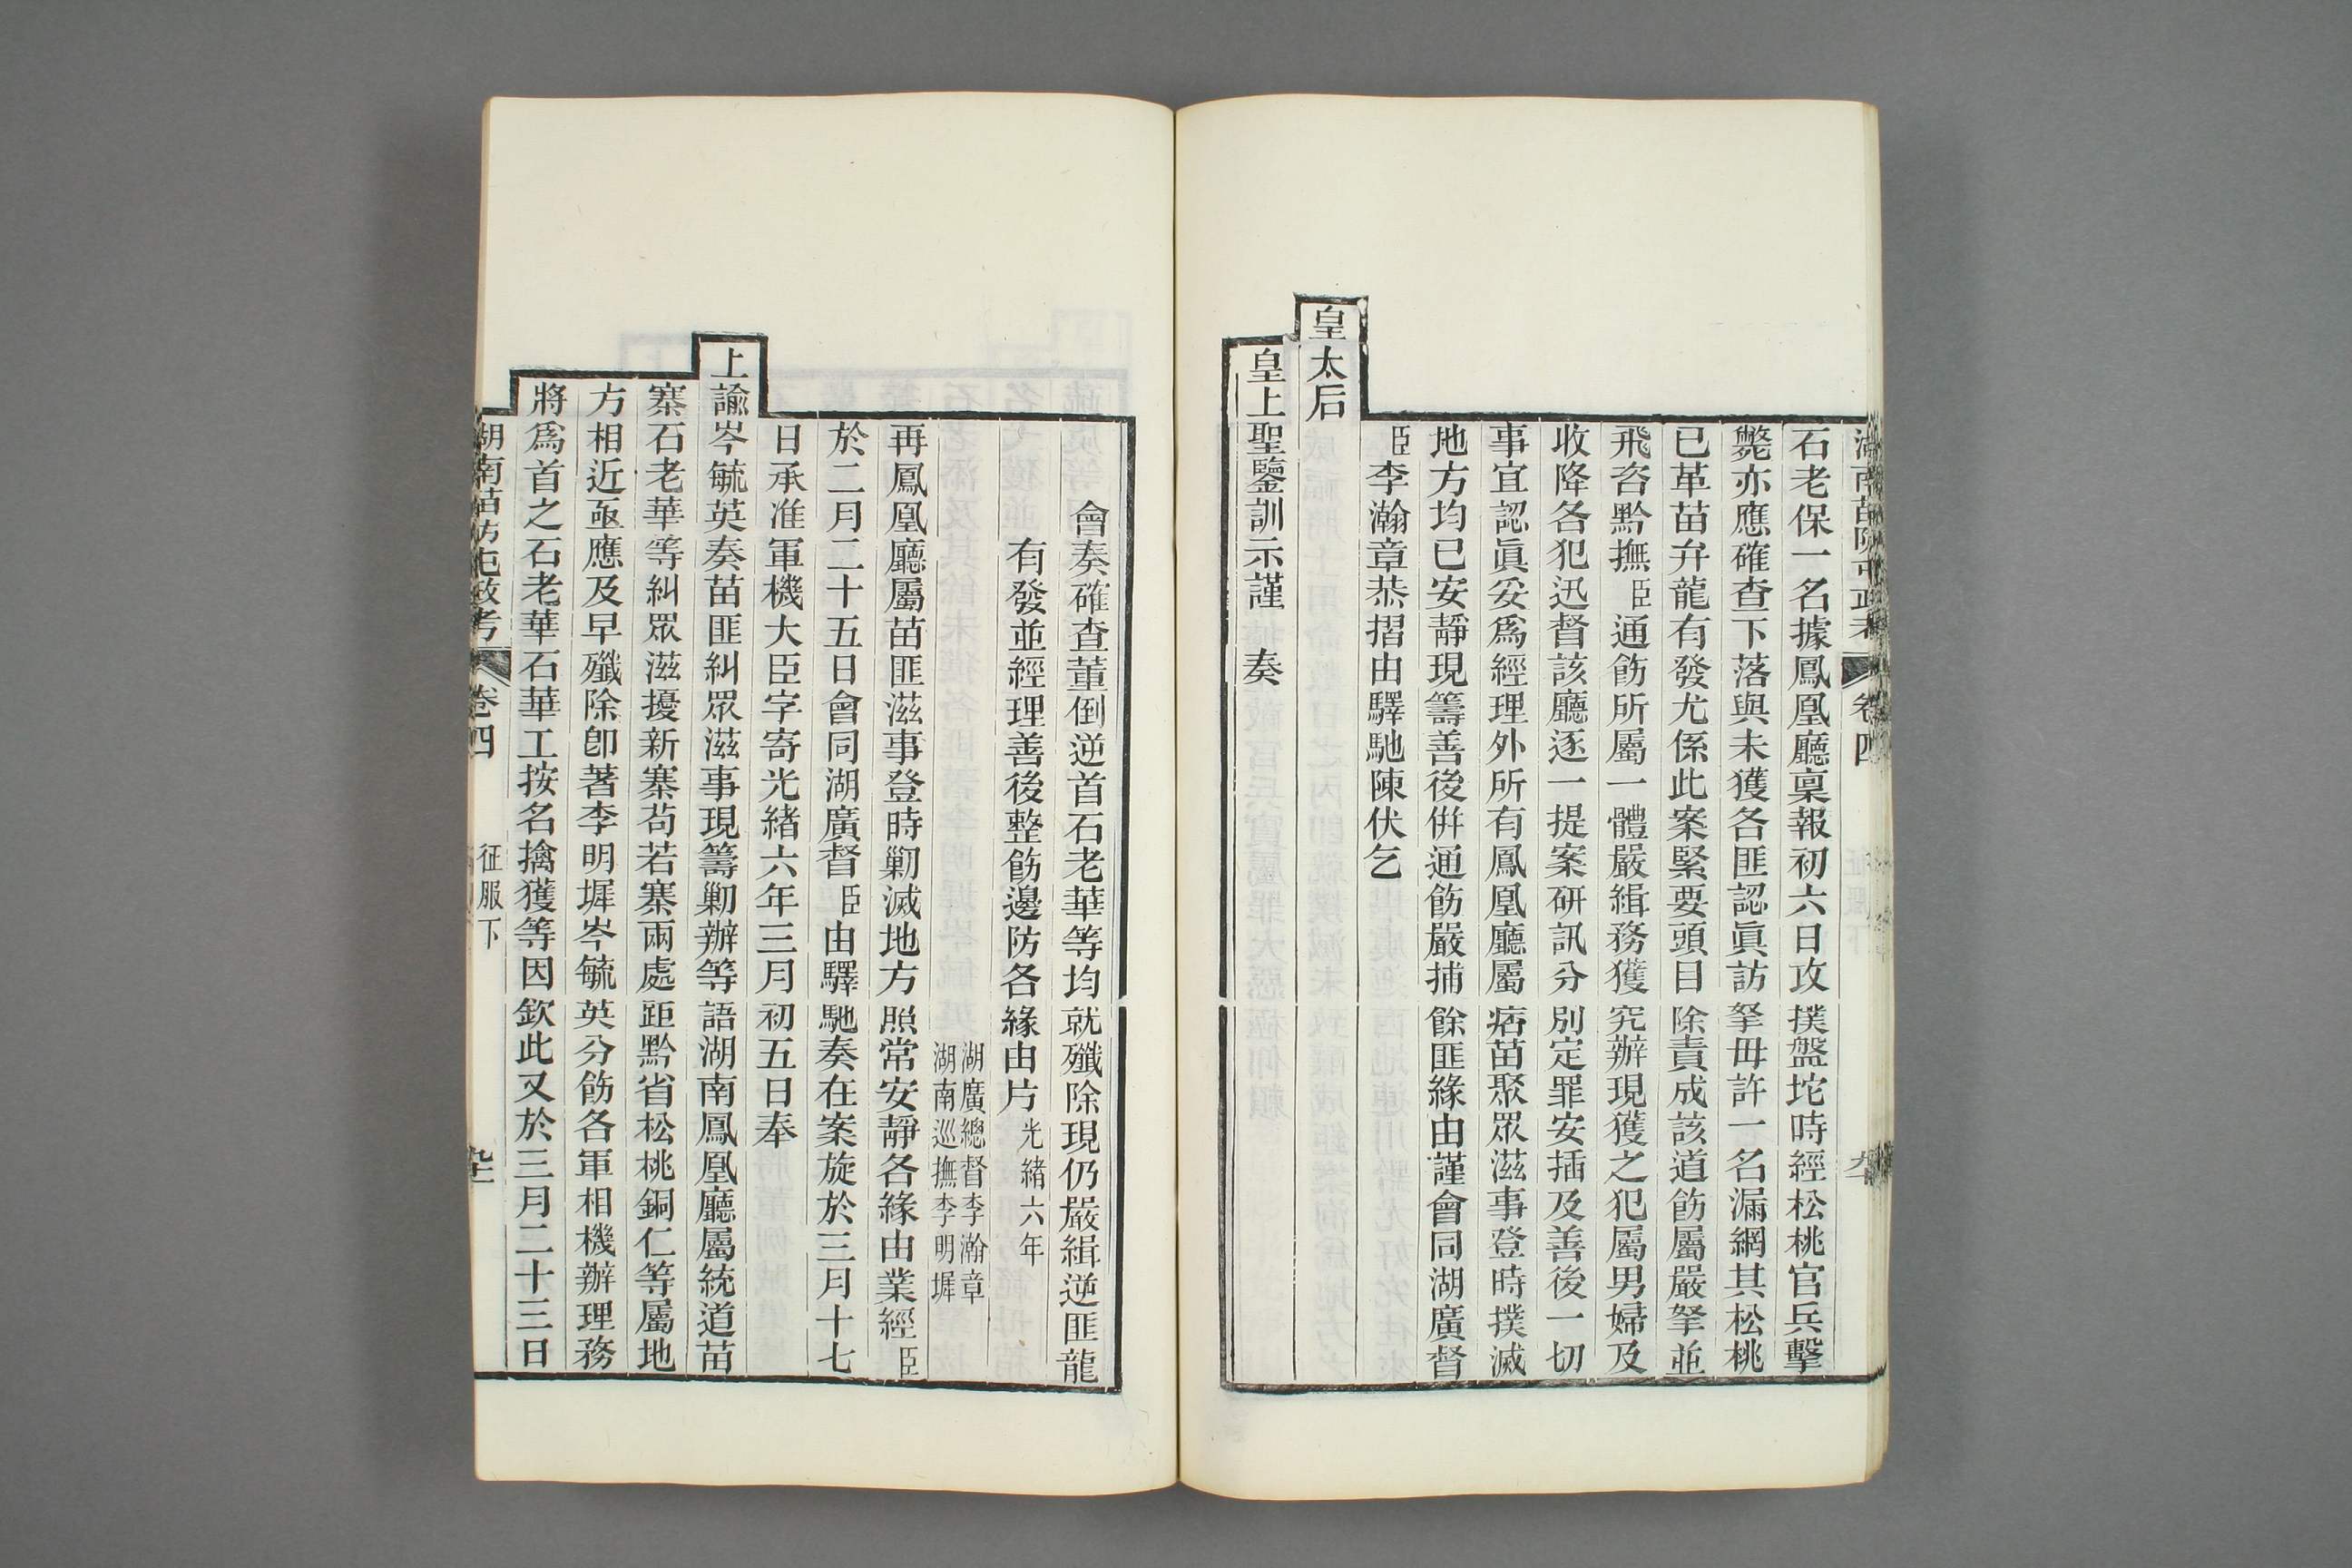 湖南苗防屯政考 卷四
石老保一名據鳳凰廳稟報初六日攻撲盤坨時經松桃官兵擊
斃亦應確查下落與未獲各匪認眞訪拏毋許一名漏網其松桃
已革苗弁龍有發尤係此案緊要頭目除責成該道飭屬嚴拏並
飛咨黔撫臣通飭所屬一體嚴緝務獲究辦現獲之犯屬男婦及
收降各犯迅督該廳逐一提案研訊分別定罪安插及善後一切
事宜認眞妥爲經理外所有鳳凰廳屬痞苗聚眾滋事登時撲滅
地方均已安靜現籌善後倂通飭嚴捕餘匪緣由謹會同湖廣督
臣李瀚章恭摺由驛馳陳伏乞
皇太后
皇上聖鑒訓示謹 奏
會奏確查董倒逆首石老華等均就殲除現仍嚴緝逆匪龍
有發並經理善後整飭邊防各緣由片光緒六年
湖廣總督李瀚章
湖南巡撫李明墀
再鳳凰廳屬苗匪滋事登時剿滅地方照常安靜各緣由業經臣
於二月二十五日會同湖廣督臣由驛馳奏在案旋於三月十七
日承准軍機大臣字寄光緒六年三月初五日奉
上諭岑毓英奏苗匪糾眾滋事現籌剿辦等語湖南鳳凰廳屬統道苗
寨石老華等糾眾滋擾新寨苟若寨兩處距黔省松桃銅仁等屬地
方相近亟應及早殲除卽著李明墀岑毓英分飭各軍相機辦理務
將爲首之石老華石華工按名擒獲等因欽此又於三月二十三日
湖南苗防屯政考 卷四 征服下